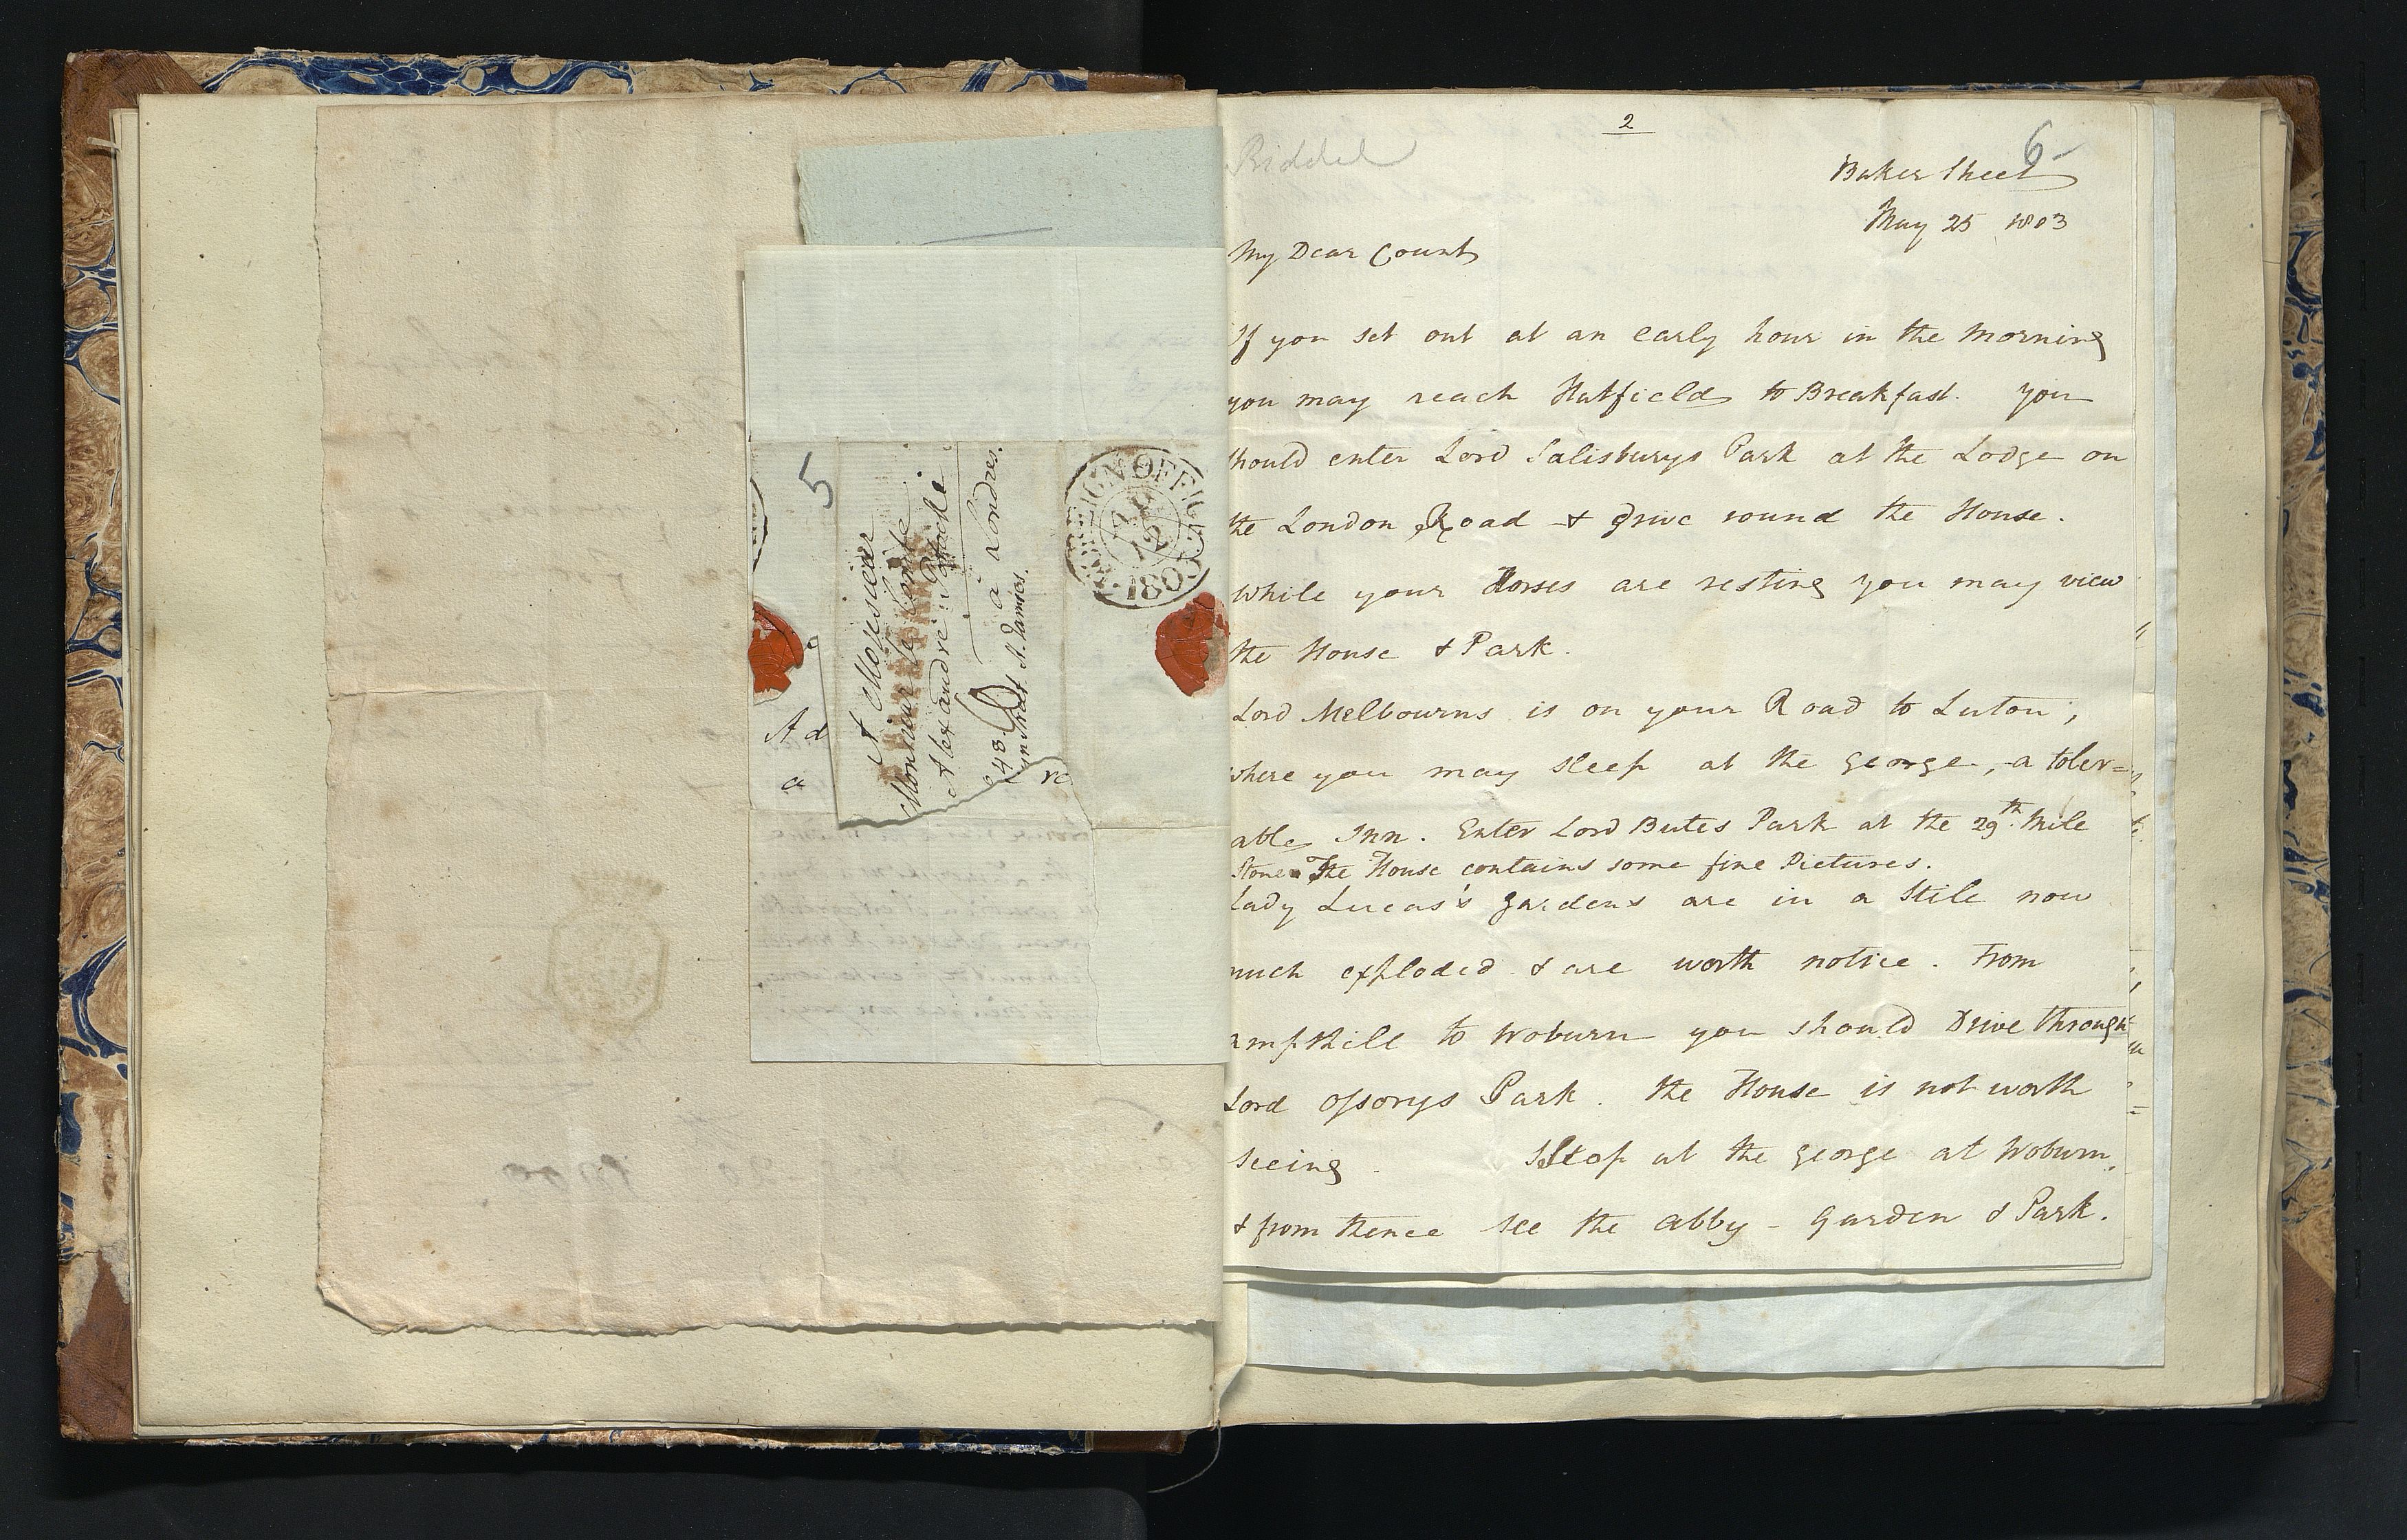 5
A Monsieur
Monsieur le Comte
Alexandre Potocki
à Londres.
N. 48
St. James.
FOREIGN OFFICE
180
Ad
a
re
2
6
Riddel
Baker Street
May 25 1803
My Dear Count
If you set out at an early hour in the morning
you may reach Hatfield to Breakfast. You
should enter Lord Salisburys Park at the Lodge on
the London Road & Drive round the House.
while your Horses are resting you may view
the House & Park.
Lord Melbourns is on your Road to Luton,
where you may sleep at the george, a toler=
able Inn. Enter Lord Butes Park at the 29th. Mile
Stone The House contains some fine Pictures.
Lady Lucas's gardens are in a Stile now
much exploded & are worth notice. From
ampthill to Woburn you should Drive through
Lord Ossorys Park. the House is not worth
seeing. Stop at the george at Woburn,
& from thence see the abby - Garden & Park.